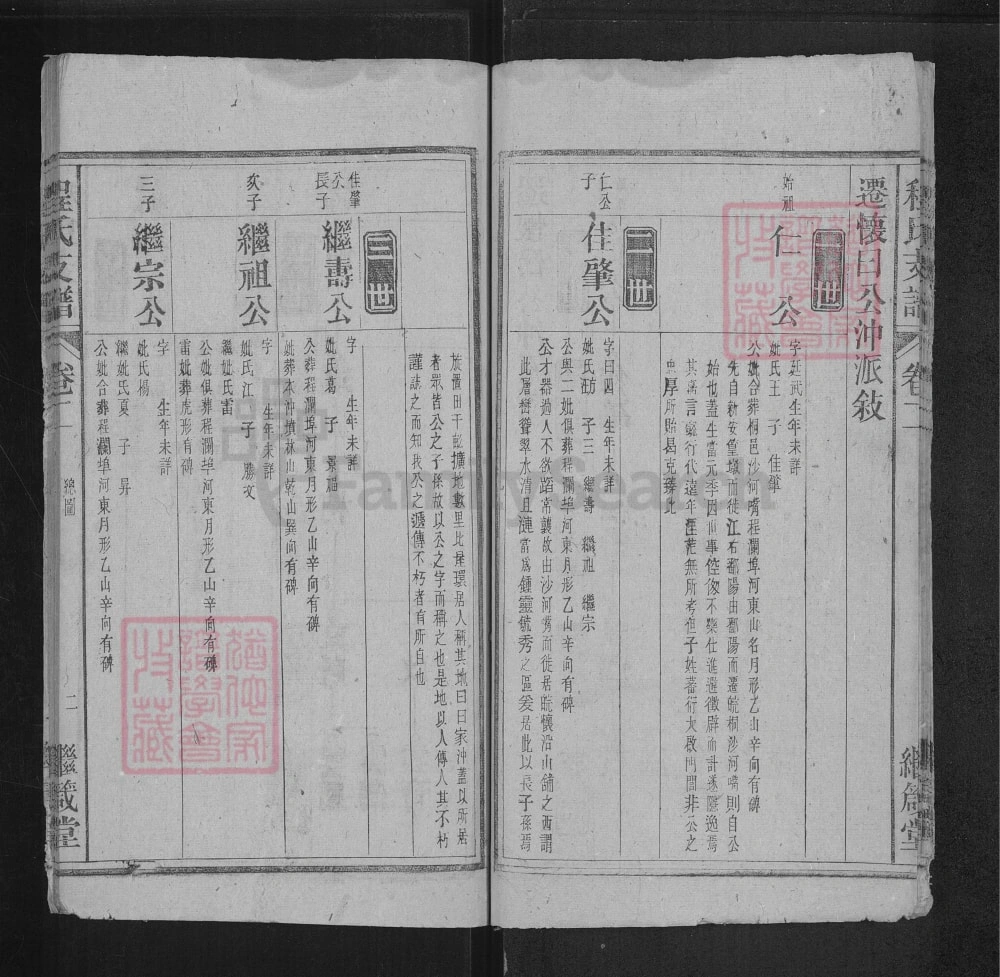 程氏支譜
卷二
繼箴堂
遷懷曰公沖派敍
一世
始祖
仁公
字廷武生年未詳
妣氏王 子 佳肇
公妣合葬桐邑沙河嘴程瀾埠河東山名月形乙山辛向有碑
先自新安篁墩而徙江右鄱陽由鄱陽而遷皖桐沙河嘴則自公
始也蓋生當元季因世事倥傯不樂仕進避徵辟而計遂隱逸焉
其嘉言懿行代遠年湮茫無所考但子姓蕃衍大啟門閭非公之
忠厚所貽曷克臻此
二世
仁公子
佳肇公
字曰四 生年未詳
妣氏胡 子三 繼壽 繼祖 繼宗
公與二妣俱葬程瀾埠河東月形乙山辛向有碑
公才器過人不欲蹈常襲故由沙河嘴而徙居皖懷沿山舖之西謂
此層巒聳翠水清且漣當為鍾靈毓秀之區爰居此以長子孫焉
旋置田千畝擴地數里比屋環居人稱其地曰曰家沖蓋以所居
者眾皆公之子孫故以公之字而稱之也是地以人傳人其不朽
謹誌之而知我公之遞傳不朽者有所自也
三世
佳肇公長子
繼壽公
字 生年未詳
妣氏葛 子 景福
公葬程瀾埠河東月形乙山辛向有碑
妣葬本沖墳林山乾山巽向有碑
次子
繼祖公
字 生年未詳
妣氏江 子 勝文
繼妣氏雷
公妣俱葬程瀾埠河東月形乙山辛向有碑
雷妣葬虎形有碑
三子
繼宗公
字 生年未詳
妣氏楊
繼妣氏夏 子 昇
公妣合葬程瀾埠河東月形乙山辛向有碑
程氏支譜
卷二
總圖
二
繼箴堂
FamilySearch